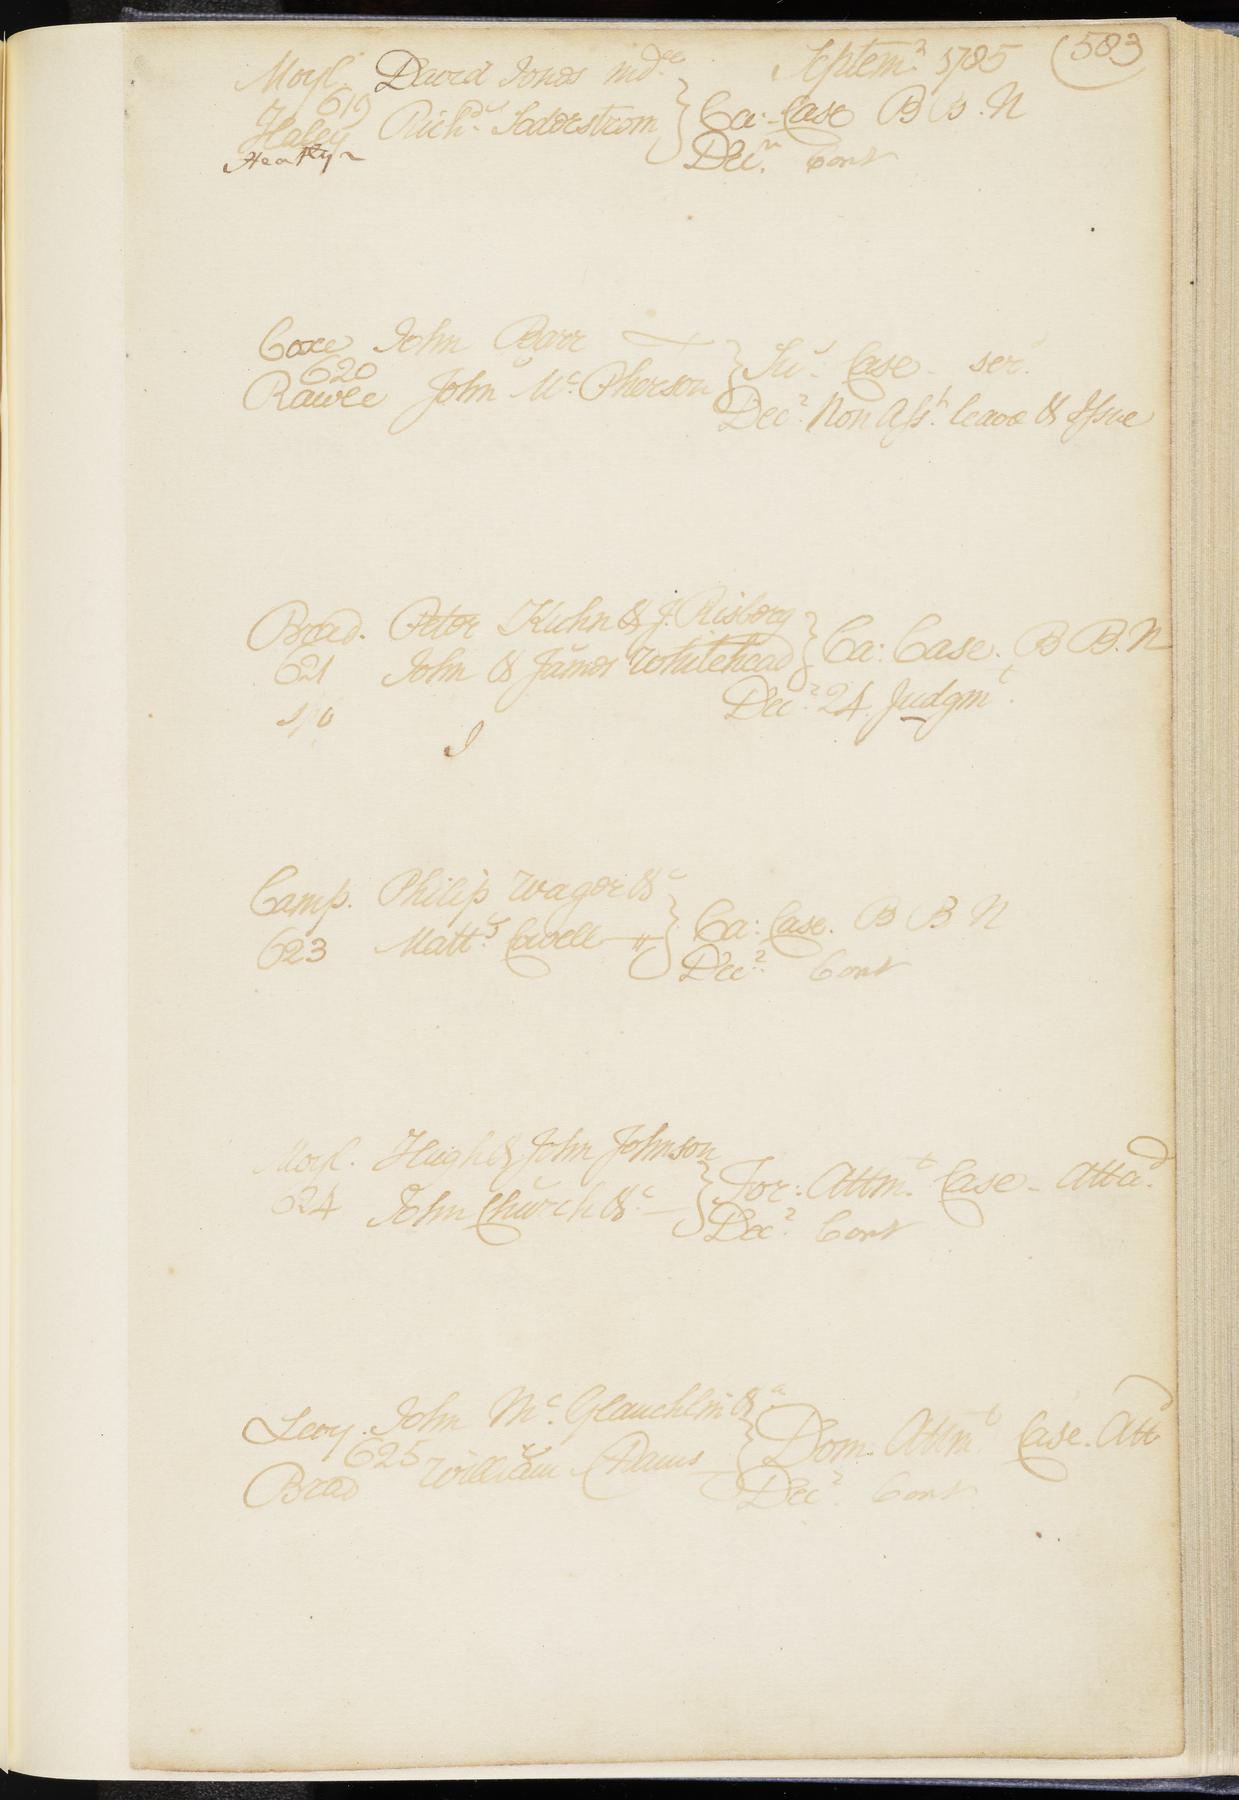 Moyl. David Jones ind.ee Septem.r 1785 (583)
619
Haley Rich.d Soderstrom } Ca: Case B B. N
Heatly Dec.r Cont
Coxe John Barr
620
Rawle John Mc. Pherson } Su.s Case - ser.
Dec.r Non Ass.t leave & Issue
Brad. Peter Kuhn & J. Risberg
621 John & James Whitehead } Ca: Case. B B. N
Dec.r 24 Judgm.t
1/6
Camp. Philip Wager &c
623 Matt.s Cowell } Ca: Case. B B N
Dec.r Cont
Moyl. Hugh & John Johnson
624 John Church &c. } For: Attm.t Case - Atta.d
Dec.r Cont
Levy. John Mc. Glauchlin &a
625 William Adams } Dom. Attm.t Case. Att
Brad Dec.r Cont